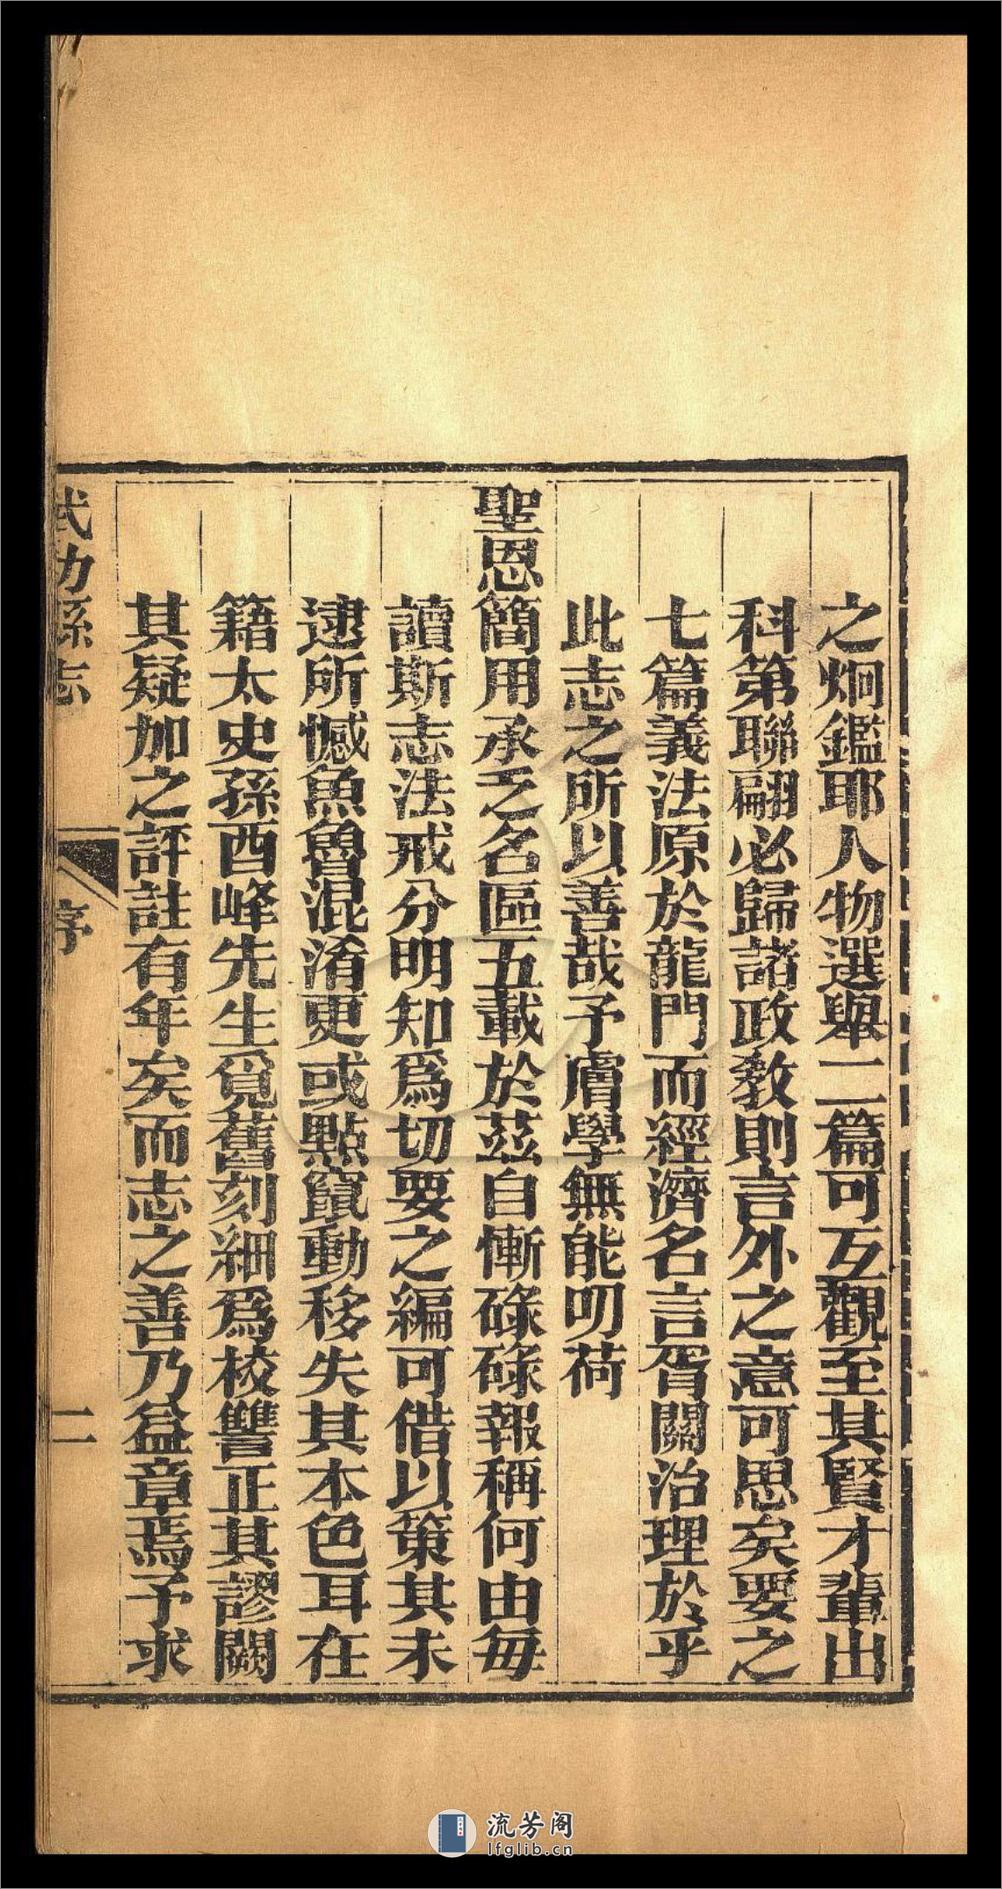 之炯鑑耶人物選舉二篇可互觀至其賢才輩出
科第聯翩必歸諸政敎則言外之意可思矣要之
七篇義法原於龍門而經濟名言胥關治理於乎
此志之所以善哉予膚學無能叨荷
聖恩簡用承乏名區五載於茲自慚碌碌報稱何由每
讀斯志法戒分明知爲切要之編可借以策其未
逮所憾魚魯混淆更或點竄動移失其本色耳在
籍太史孫酉峰先生覓舊刻細爲校讐正其謬闕
其疑加之評註有年矣而志之善乃益章焉予求
武功縣志
序
二
流芳阁
lfglib.cn